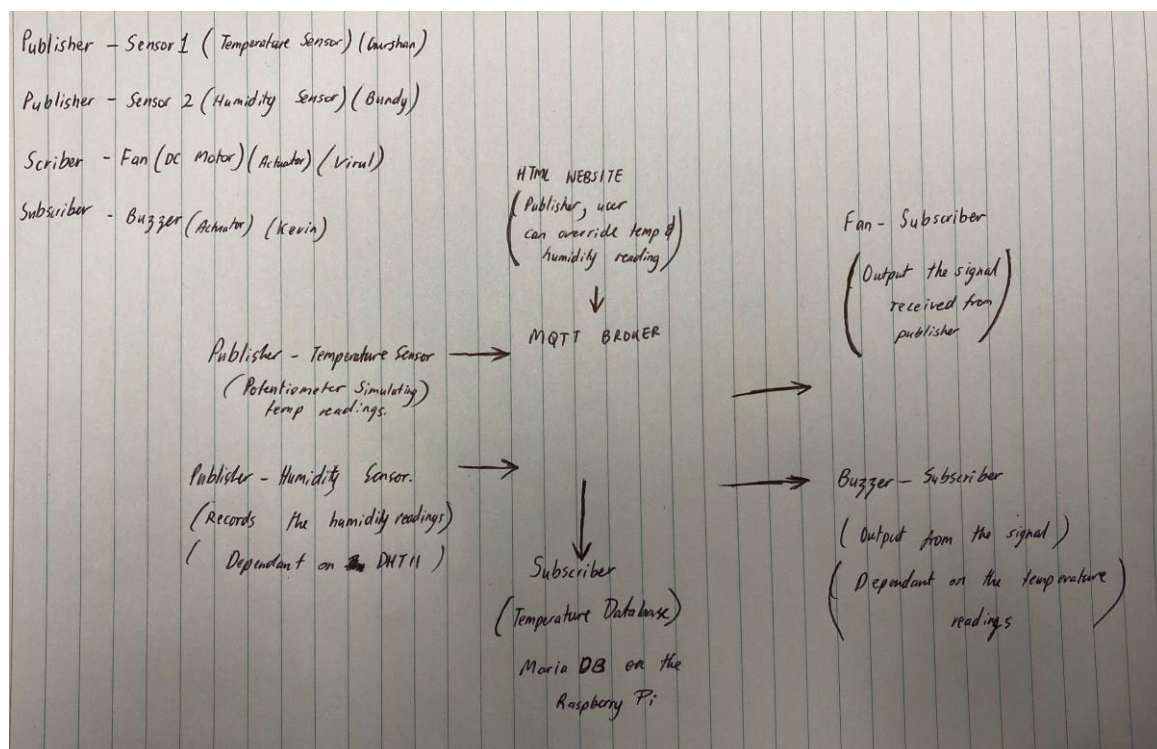 Publisher - Sensor 1 (Temperature Sensor) (Gurshan)
Publisher - Sensor 2 (Humidity Sensor) (Bundy)
Scriber - Fan (DC Motor) (Actuator) (Virul)
Subscriber - Buzzer (Actuator) (Kevin)
HTML WEBSITE
(Publisher, user
can override temp &
humidity reading)
MQTT BROKER
Publisher - Temperature Sensor
(Potentiometer Simulating)
temp readings.
Publisher - Humidity Sensor.
(Records the humidity readings)
( Dependant on DHT11 )
Subscriber
(Temperature Database)
Maria DB on the
Raspberry Pi
Fan - Subscriber
(Output the signal
received from
publisher)
Buzzer - Subscriber
(Output from the signal)
(Dependant on the temperature
readings)